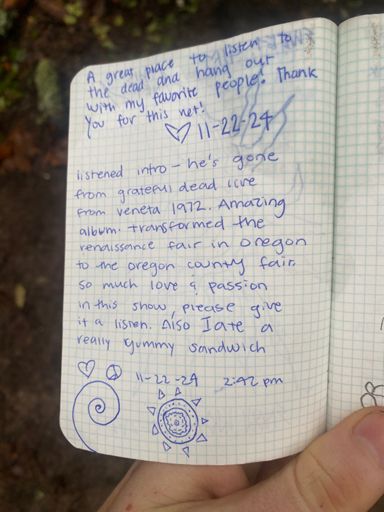 A great place to listen to
the dead and hang out
with my favorite people! Thank
you for this net!
11-22-24
listened intro - he's gone
from grateful dead live
from veneta 1972. Amazing
album. transformed the
renaissance fair in oregon
to the oregon county fair.
so much love & passion
in this show, please give
it a listen. Also I ate a
really yummy sandwich
11-22-24 2:42 pm